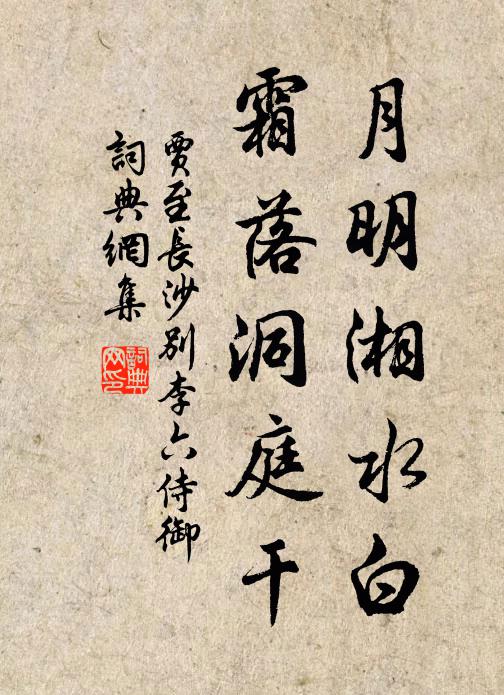 月明湘水白
霜落洞庭干
賈至長沙別李六侍御
詞典網集
詞典网印